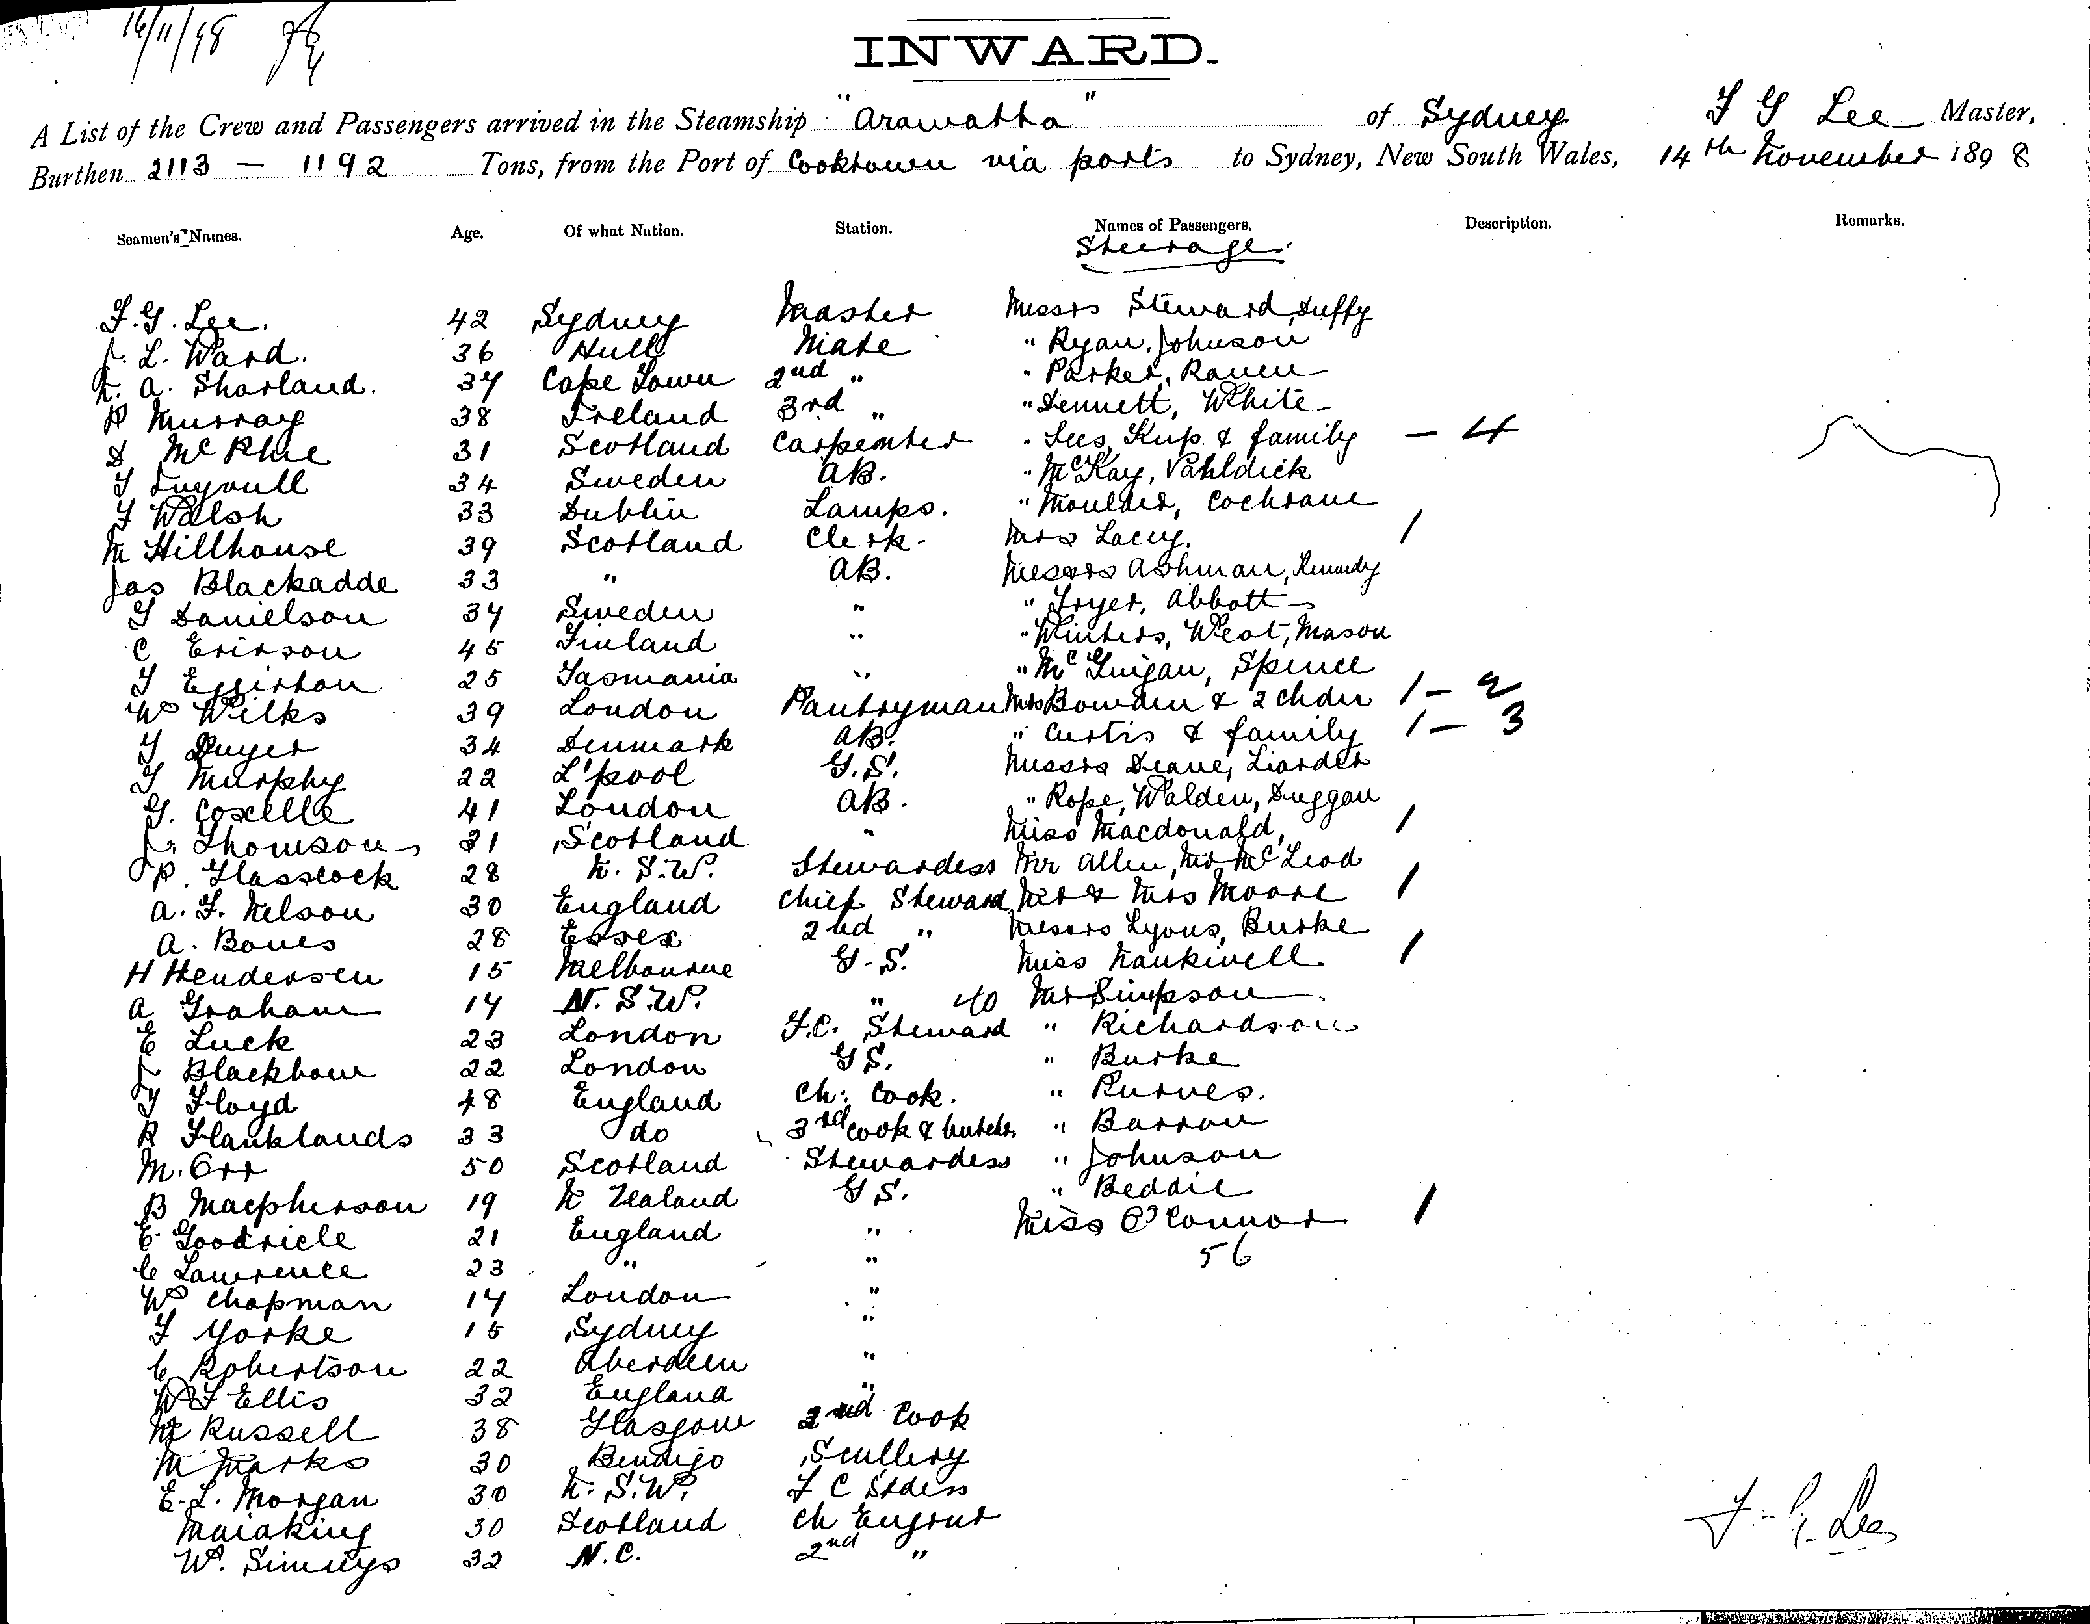 16/11/98
INWARD.
A List of the Crew and Passengers arrived in the Steamship "Arawatta" of Sydney F G Lee Master,
Burthen 2113 — 1192 Tons, from the Port of Cooktown via ports to Sydney, New South Wales, 14th November 1898
Seamen's Names. Age. Of what Nation. Station. Names of Passengers. Description. Remarks.
Steerage
F. G. Lee. 42 Sydney Master Messrs Steward, Duffy
J. L. Ward. 36 Hull Mate " Ryan, Johnson
N. A. Sharland. 37 Cape Town 2nd " " Parker, Raven
P Murray 38 Ireland 3rd " " Dennett, White
D McPhie 31 Scotland Carpenter " Lees, Kup & family — 4
34 Sweden AB. " McKay, Vahldick
T Walsh 33 Dublin Lamps. " Moulder, Cochrane
M Hillhouse 39 Scotland Clerk. Mrs Lacey. 1
Jas Blackadde 33 " AB. Messrs Ashman, Kennedy
T Danielson 37 Sweden " " Fryer, Abbott
C Erikson 45 Finland " " Winters, West, Mason
T Eggirton 25 Tasmania " " McGuigan, Spence
Wm Wilks 39 London Pantryman Mrs Bowden & 2 chdn 1 — 2
T Duyer 34 Denmark AB. " Curtis & family 1 — 3
T Murphy 22 L'pool G.S. Messrs Deane, Liardet
G. Coxelle 41 London AB. " Rope, Walden, Duggan
J. Thomson 31 Scotland " Miss Macdonald, 1
P. Glasscock 28 N. S. W. Stewardess Mr Allen, Mr McLeod
A. F. Nelson 30 England Chief Steward Mr & Mrs Moore 1
A. Bones 28 Essex 2nd " Messrs Lyons, Burke
H Hendersen 15 Melbourne G.S. Miss Nankivell 1
A Graham 17 N. S. W. " 40 Mr Simpson
E Luck 23 London F.C. Steward " Richardson
J Blackbow 22 London G S. " Burke
T Floyd 48 England Ch: Cook. " Purves.
R Flanklands 33 do 3rd Cook & butcher " Barron
M. Orr 50 Scotland Stewardess " Johnson
B Macpherson 19 N Zealand G S. " Beddie
E Goodricle 21 England " Miss O'Connor 1
C Lawrence 23 " " 56
Wm Chapman 17 London "
F Yorke 15 Sydney "
C Robertson 22 Aberdeen "
W T Ellis 32 England "
Russell 38 Glasgow 2nd Cook
M Marks 30 Bendigo Scullery
E. L. Morgan 30 N. S. W. F C Stdess
Maiaking 30 Scotland Ch Engineer
W. Simmys 32 N. C. 2nd "
F. G. Lee